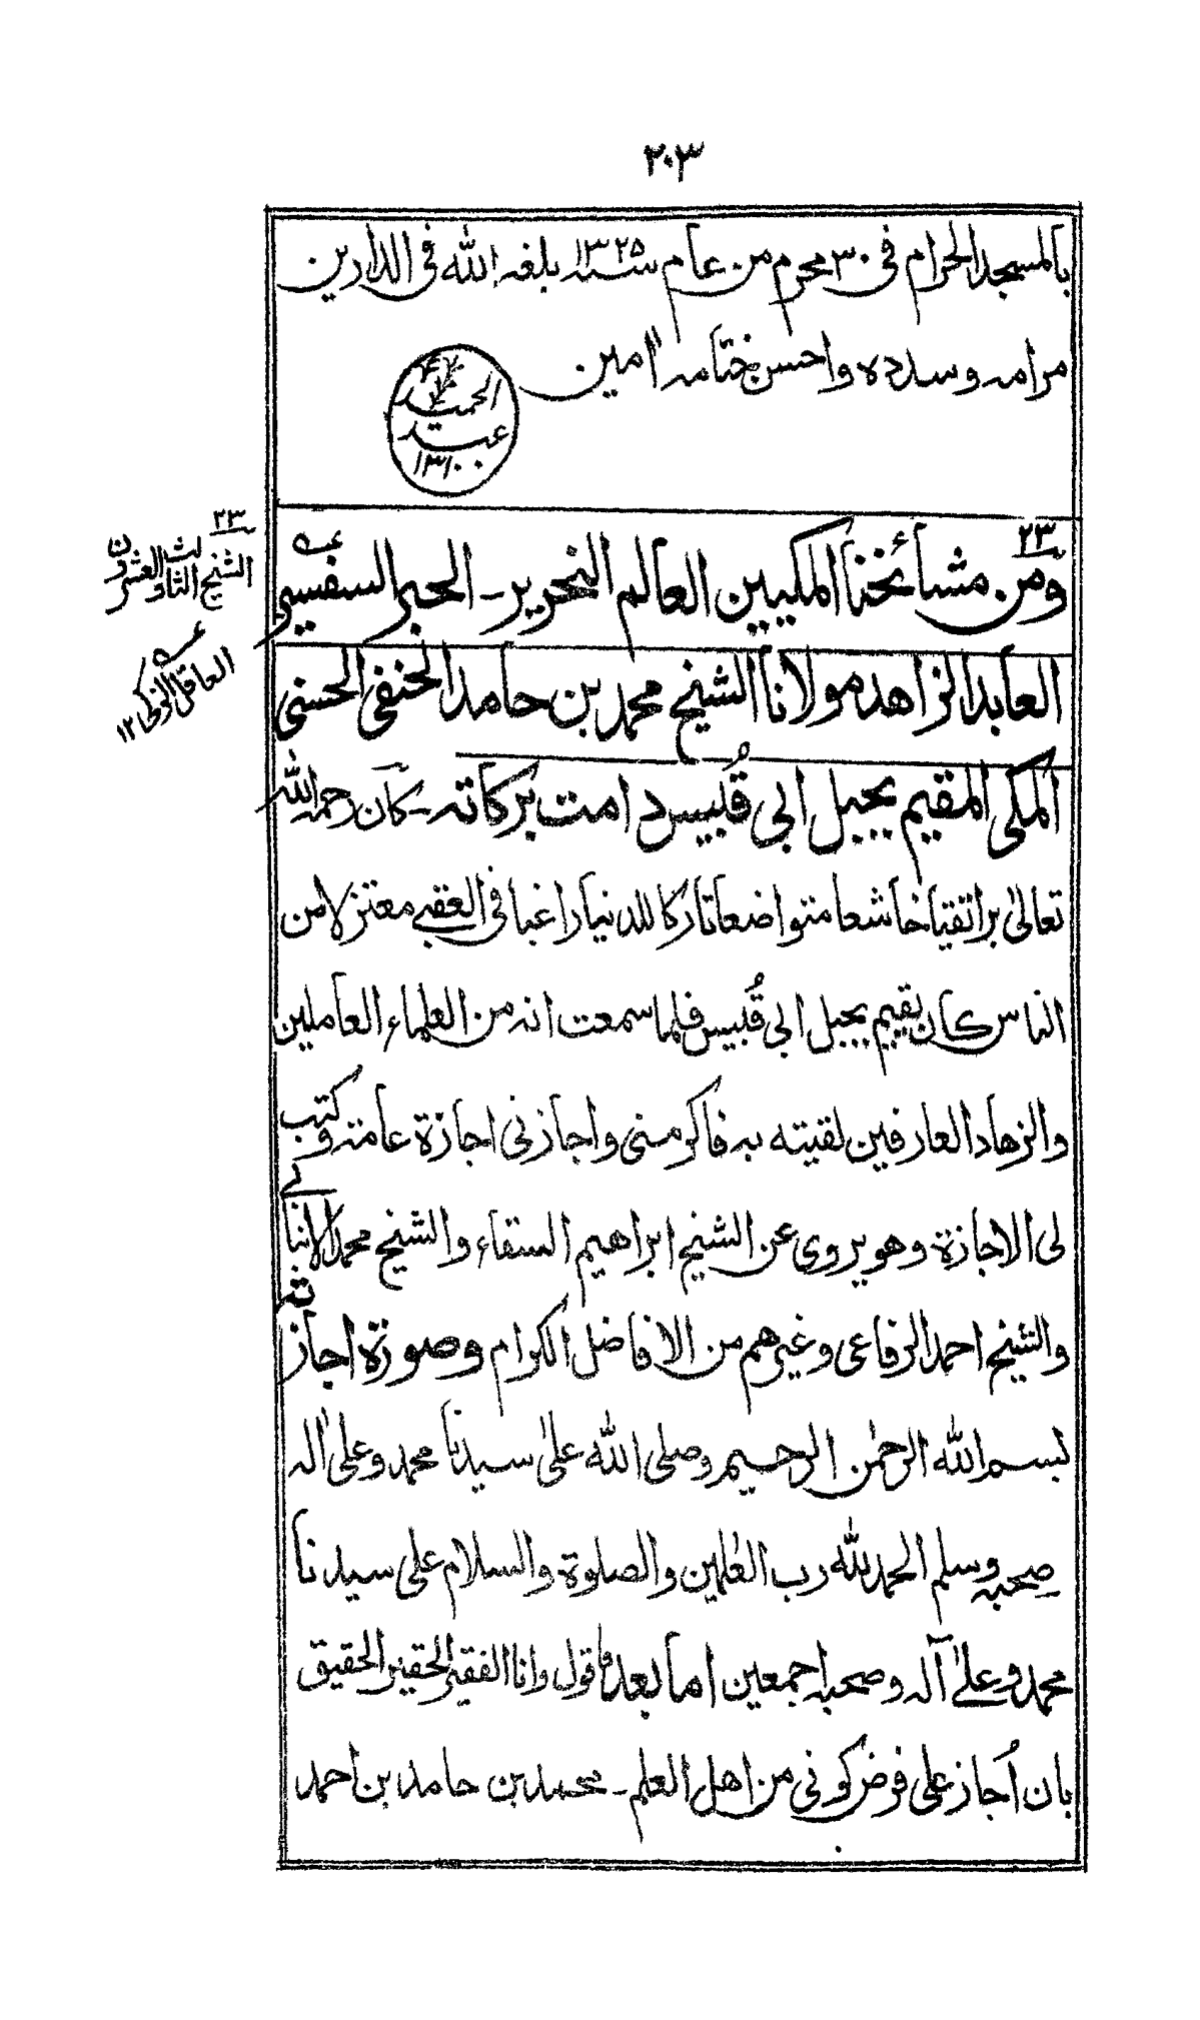 ٢٠٣
بالمسجد الحرام فی ٣٠ محرم من عام ١٣٢٥سنه بلغه الله فی الدارین
مرامه وسدده واحسن ختامه اٰمین
الحمید
عبد
١٣١٠٠
٢٣
ومن مشائخنا المکیین العالم النحریر۔ الحبر السفسیر
العابد الزاهد مولانا الشیخ محمد بن حامد الحنفی الحسنی
المکی المقیم بجبل ابی قُبیس دامت برکاته۔ کان رحمه الله
تعالیٰ برا تقیا خاشعا متواضعا تارکا للدنیا راغبا فی العقبے معتزلا من
الناس کان یقیم بجبل ابی قُبیس فلما سمعت انه من العلماء العاملین
والزهاد العارفین لقیته به فاکرمنی واجازنی اجازة عامة وکتب
لی الاجازة وهو یروی عن الشیخ ابراهیم السقاء والشیخ محمد الانبابے
والشیخ احمد الرفاعی وغیرهم من الافاضل الکرام وصورة اجازته
بسم الله الرحمٰن الرحیم وصلی الله علیٰ سیدنا محمد وعلیٰ اٰله
صحبه وسلم الحمد لله رب العٰلمین والصلوة والسلام علی سیدنا
محمد وعلےٰ آله وصحبه اجمعین اما بعد فاقول وانا الفقیر الحقیر الحقیق
بان اُجاز علی فرض کونی من اهل العلم۔ محمد بن حامد بن احمد
٢٣
الشیخ الثالث والعشرون
عه
العاقل الذکی ١٢